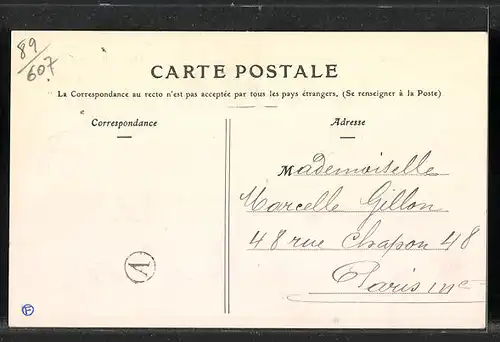 89/607
CARTE POSTALE
La Correspondance au recto n'est pas acceptée par tous les pays étrangers. (Se renseigner à la Poste)
Correspondance
Adresse
Mademoiselle
Marcelle Gillon
48 rue Chapon 48
Paris III e
A
F